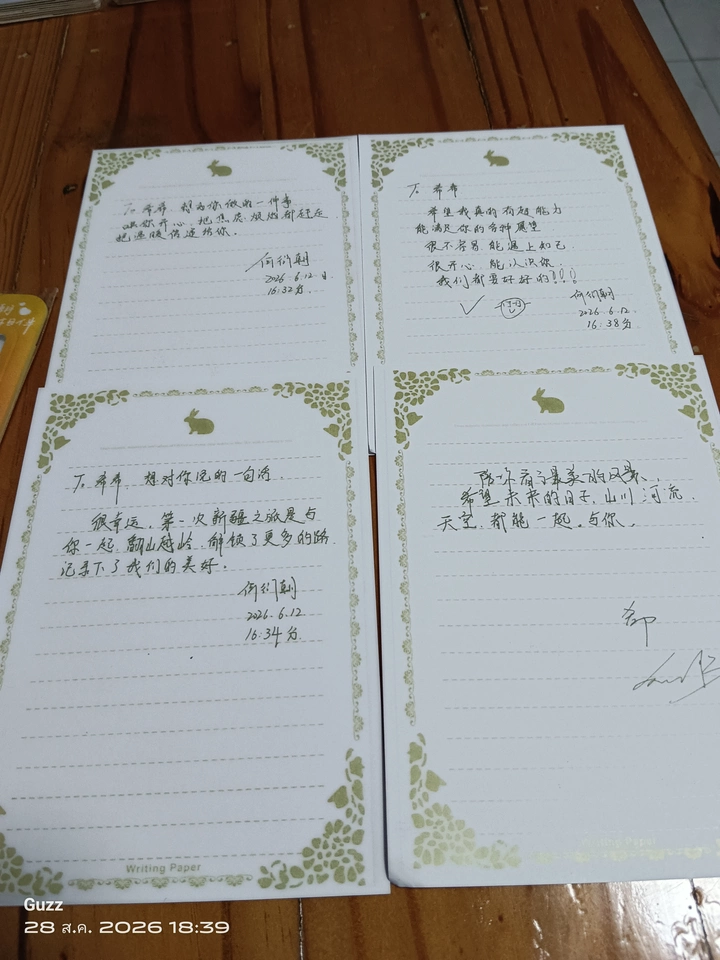 To 希希 想为你做的一件事
哄你开心，把焦虑、烦恼都赶走
把温暖传递给你。
何衍朝
2026.6.12日
16:32分
To 希希
希望我真的有超能力
能满足你的各种愿望
很不容易能遇上知己
很开心，能认识你
我们都要好好的!!!
何衍朝
2026.6.12
16:38分
To 希希 想对你说的一句话
很幸运，第一次新疆之旅是与
你一起，翻山越岭，解锁了更多的路
记录下了我们的美好。
何衍朝
2026.6.12
16:34分
陪你看了最美的风景、
希望未来的日子，山川河流，
天空，都能一起。与你。
Writing Paper
Writing Paper
Guzz
28 ส.ค. 2026 18:39